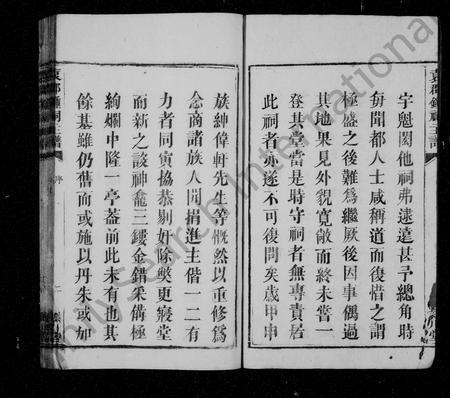 宇魁閎他祠弗逮遠甚予總角時
每聞都人士咸稱道而復惜之謂
極盛之後難為繼厥後因事偶過
其地果見外貌寬敞而終未嘗一
登其堂當是時守祠者無專責居
此祠者亦遂不可復問矣歲甲申
族紳偉軒先生等慨然以重修為
念商諸族人閒捐進主偕一二有
力者同寅協恭剔奸除獘更寢堂
而新之該神龕三鏤金錯采備極
絢爛中隆一亭蓋前此未有也其
餘基雖仍舊而或施以丹朱或加
序